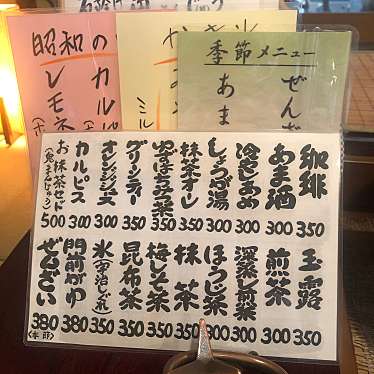 季節メニュー
ぜんざ
あま
ミル
昭和の
カルピ
レモネ
珈琲 350
あま酒 300
冷しあめ 300
しょうが湯 300
抹茶オレ 350
茶 350
グリーンティー 350
オレンジジュース 300
カルピス 300
お抹茶セット
(鬼まんじゅう) 500
玉露 350
煎茶 300
深蒸し煎茶 300
ほうじ茶 300
抹茶 350
梅しそ茶 350
昆布茶 350
氷(宇治しぐれ) 350
門前がゆ 380
ぜんざい 380